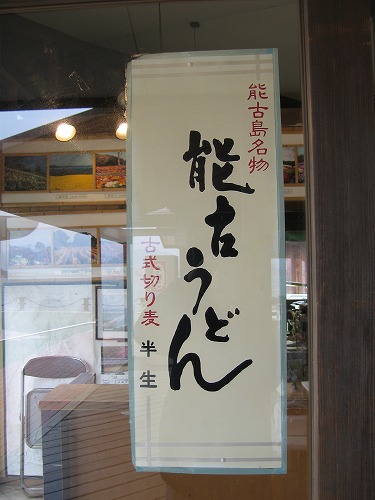 能古島名物
能古うどん
古式切り麦 半生